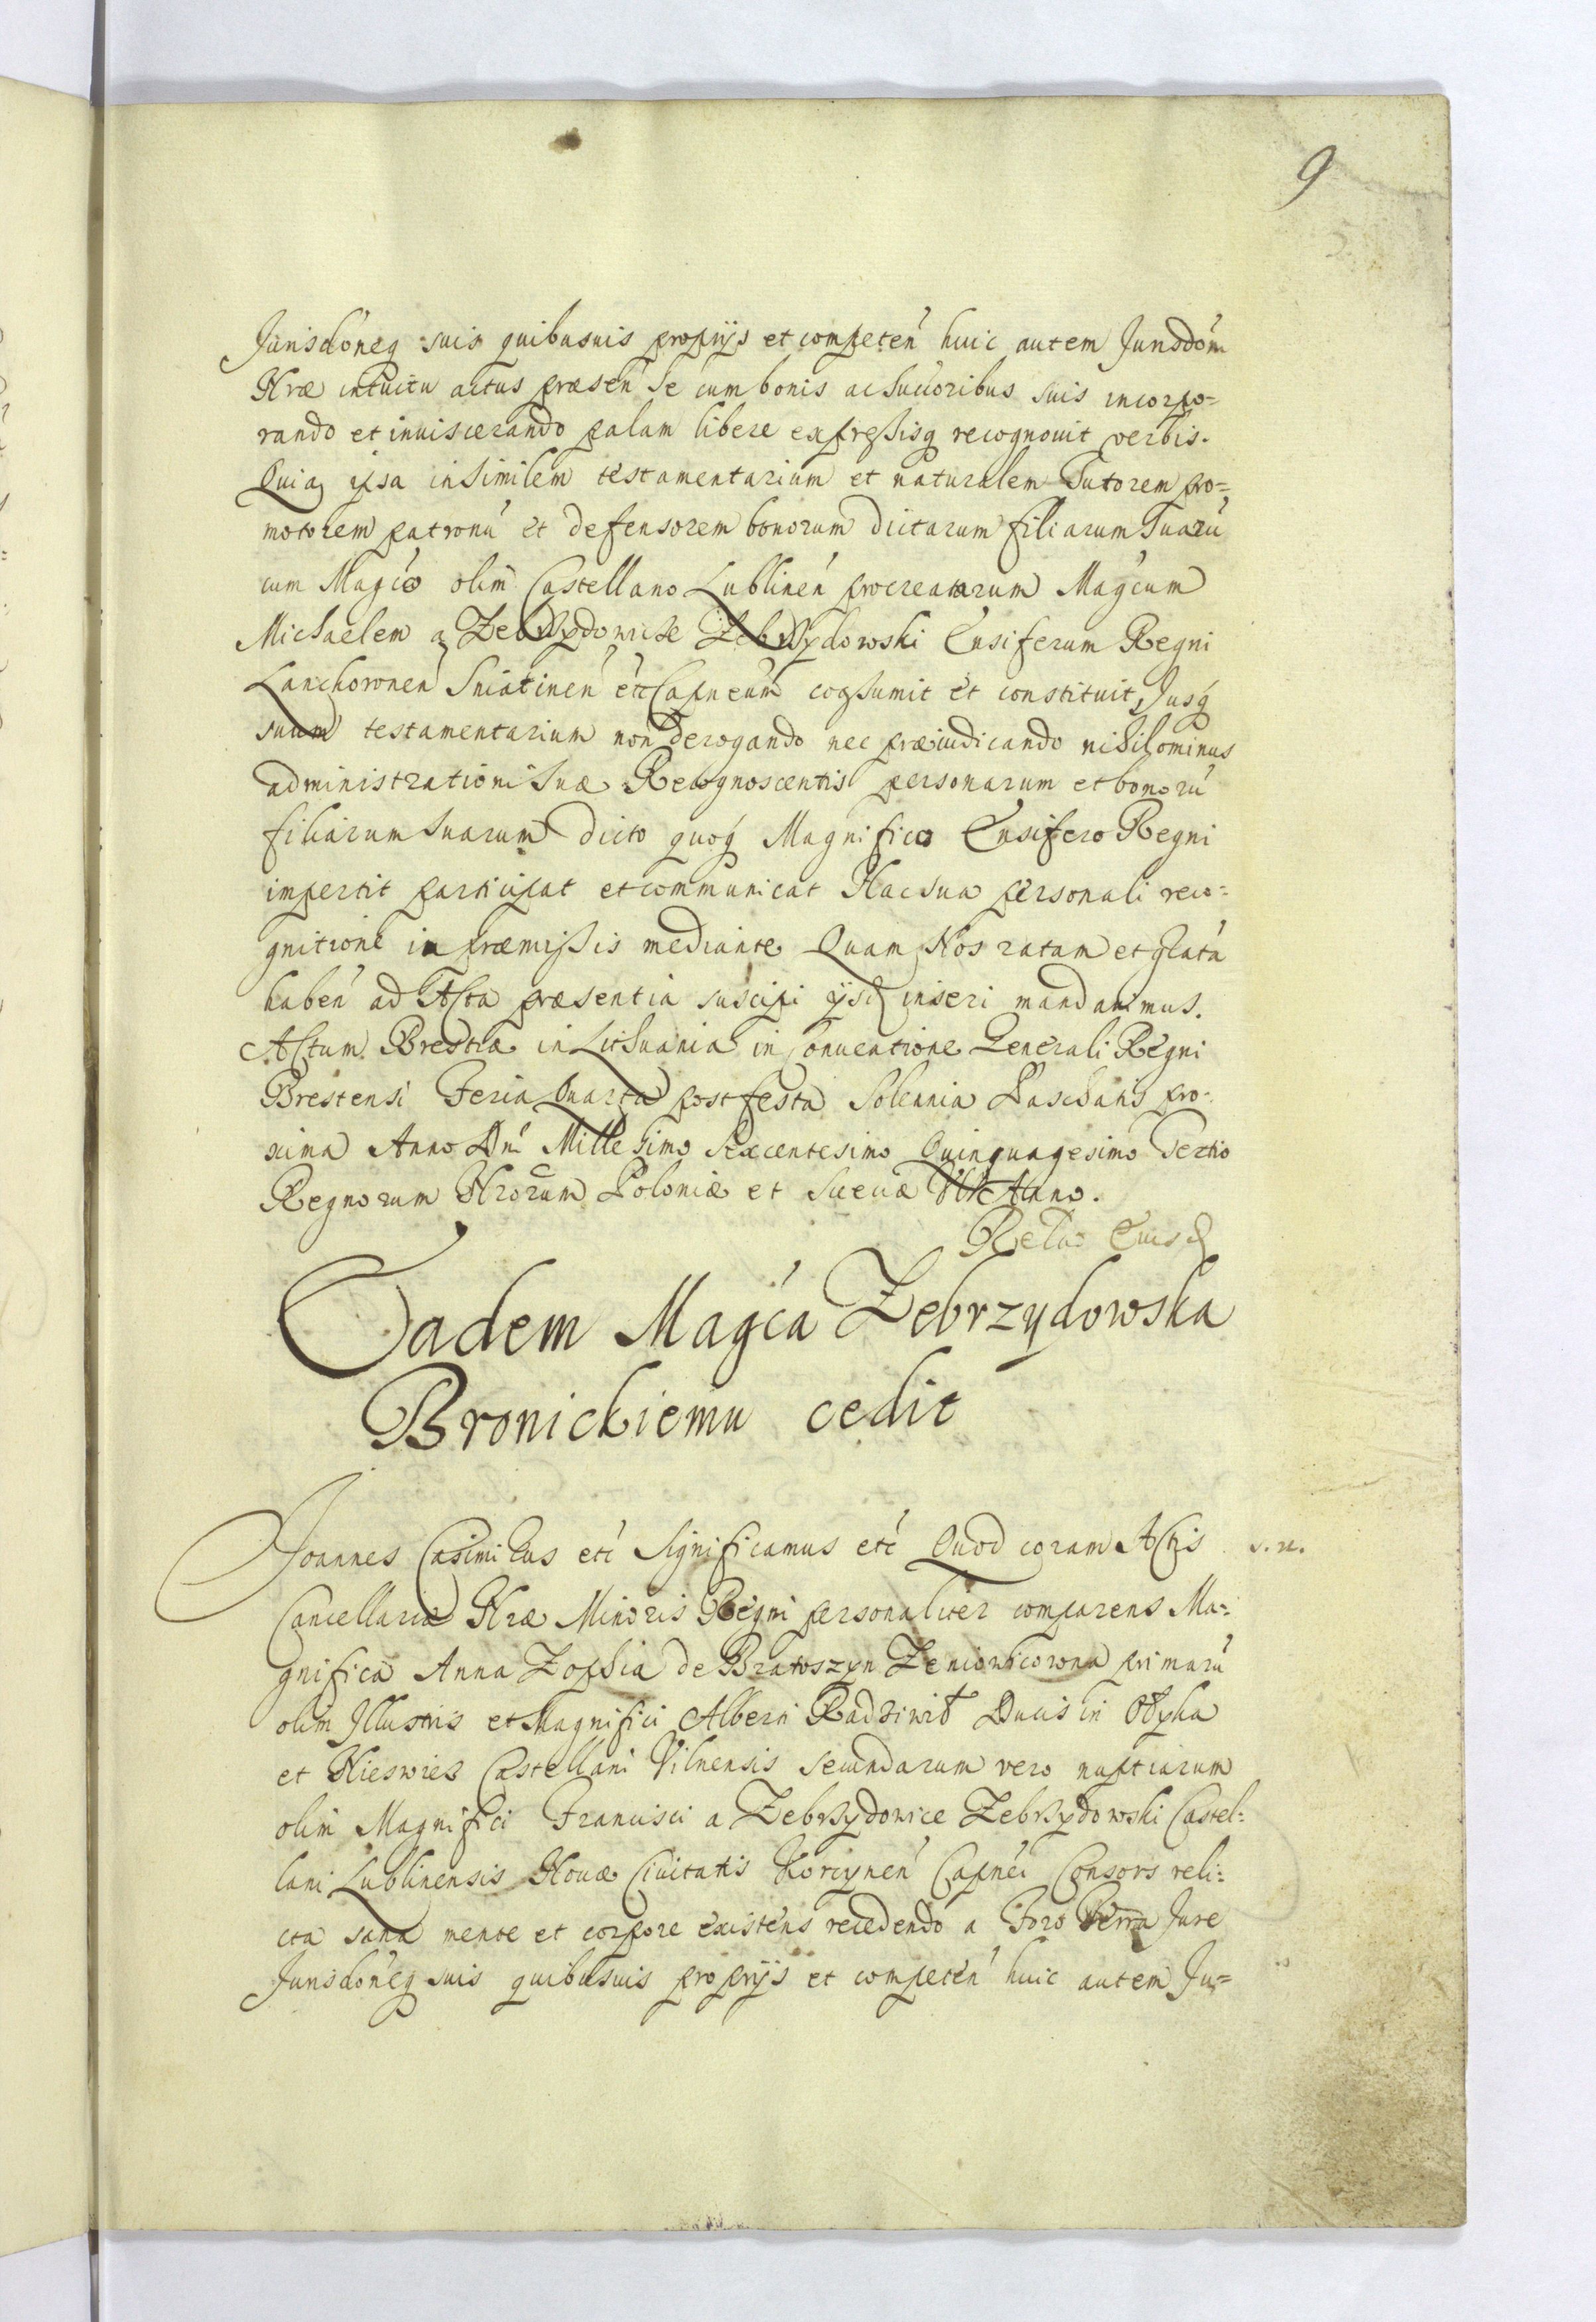 9
Jurisdóneq suis quibusuis proprijs et competeń huic autem Jurisdóni
Nræ intuitu actus præseń se cum bonis ac Succoribus suis incorpo=
rando et inuiscerando palam libere expreßisq recognouit verbis.
Quia ipsa in Similem testamentarium et naturalem Tutorem pro=
motorem patronú et defensorem bonorum dictarum filiarum Suarú
cum Magco olim Castellano Lublineń procreatarum Magcum
Michaelem a Zebrzydowice Zebrzydowski Ensiferum Regni
Lanchoroneń Sniatineń etc Capneum assumit et constituit, Jusq
suum testamentarium non derogando nec præiudicando nihilominus
administrationi Suæ Recognoscentis personarum et bonorú
filiarum Suarum dicto quoq Magnifico Ensifero Regni
impertit participat et communicat Hac sua personali reco=
gnitione in præmißis mediante Quam Nos ratam et gratá
habeń ad Acta præsentia suscipi ijsq inseri mandauimus.
Actum Brestiæ in Lithuania in Conuocatione Generali Regni
Brestensi Feria Quarta post festa Solennia Paschatis pro=
xima Anno Dni Millesimo Sexcentesimo Quinquagesimo Tertio
Regnorum Nrorum Poloniæ et Sueciæ Anno.
Relao Eiusd
Eadem Magca Zebrzydowska
Bronickiemu cedit
Joannes Casimirus etc Significamus etc Quod coram Actis s. n.
Cancellariæ Nræ Minoris Regni personaliter comparens Ma=
gnifica Anna Zophia de Bratoszyn Zeniowicowna primarú
olim Illustris et Magnifici Alberti Radziwił Ducis in Ołyka
et Nieswies Castellani Vilnensis secundarum vero nuptiarum
olim Magnifici Francisci a Zebrzydowice Zebrzydowski Castel=
lani Lublinensis Nouæ Ciuitatis Korcyneń Capnei Consors reli=
cta sana mente et corpore existens recedendo a Foro Terra Jure
Jurisdóneq suis quibusuis proprijs et competeń huic autem Ju=